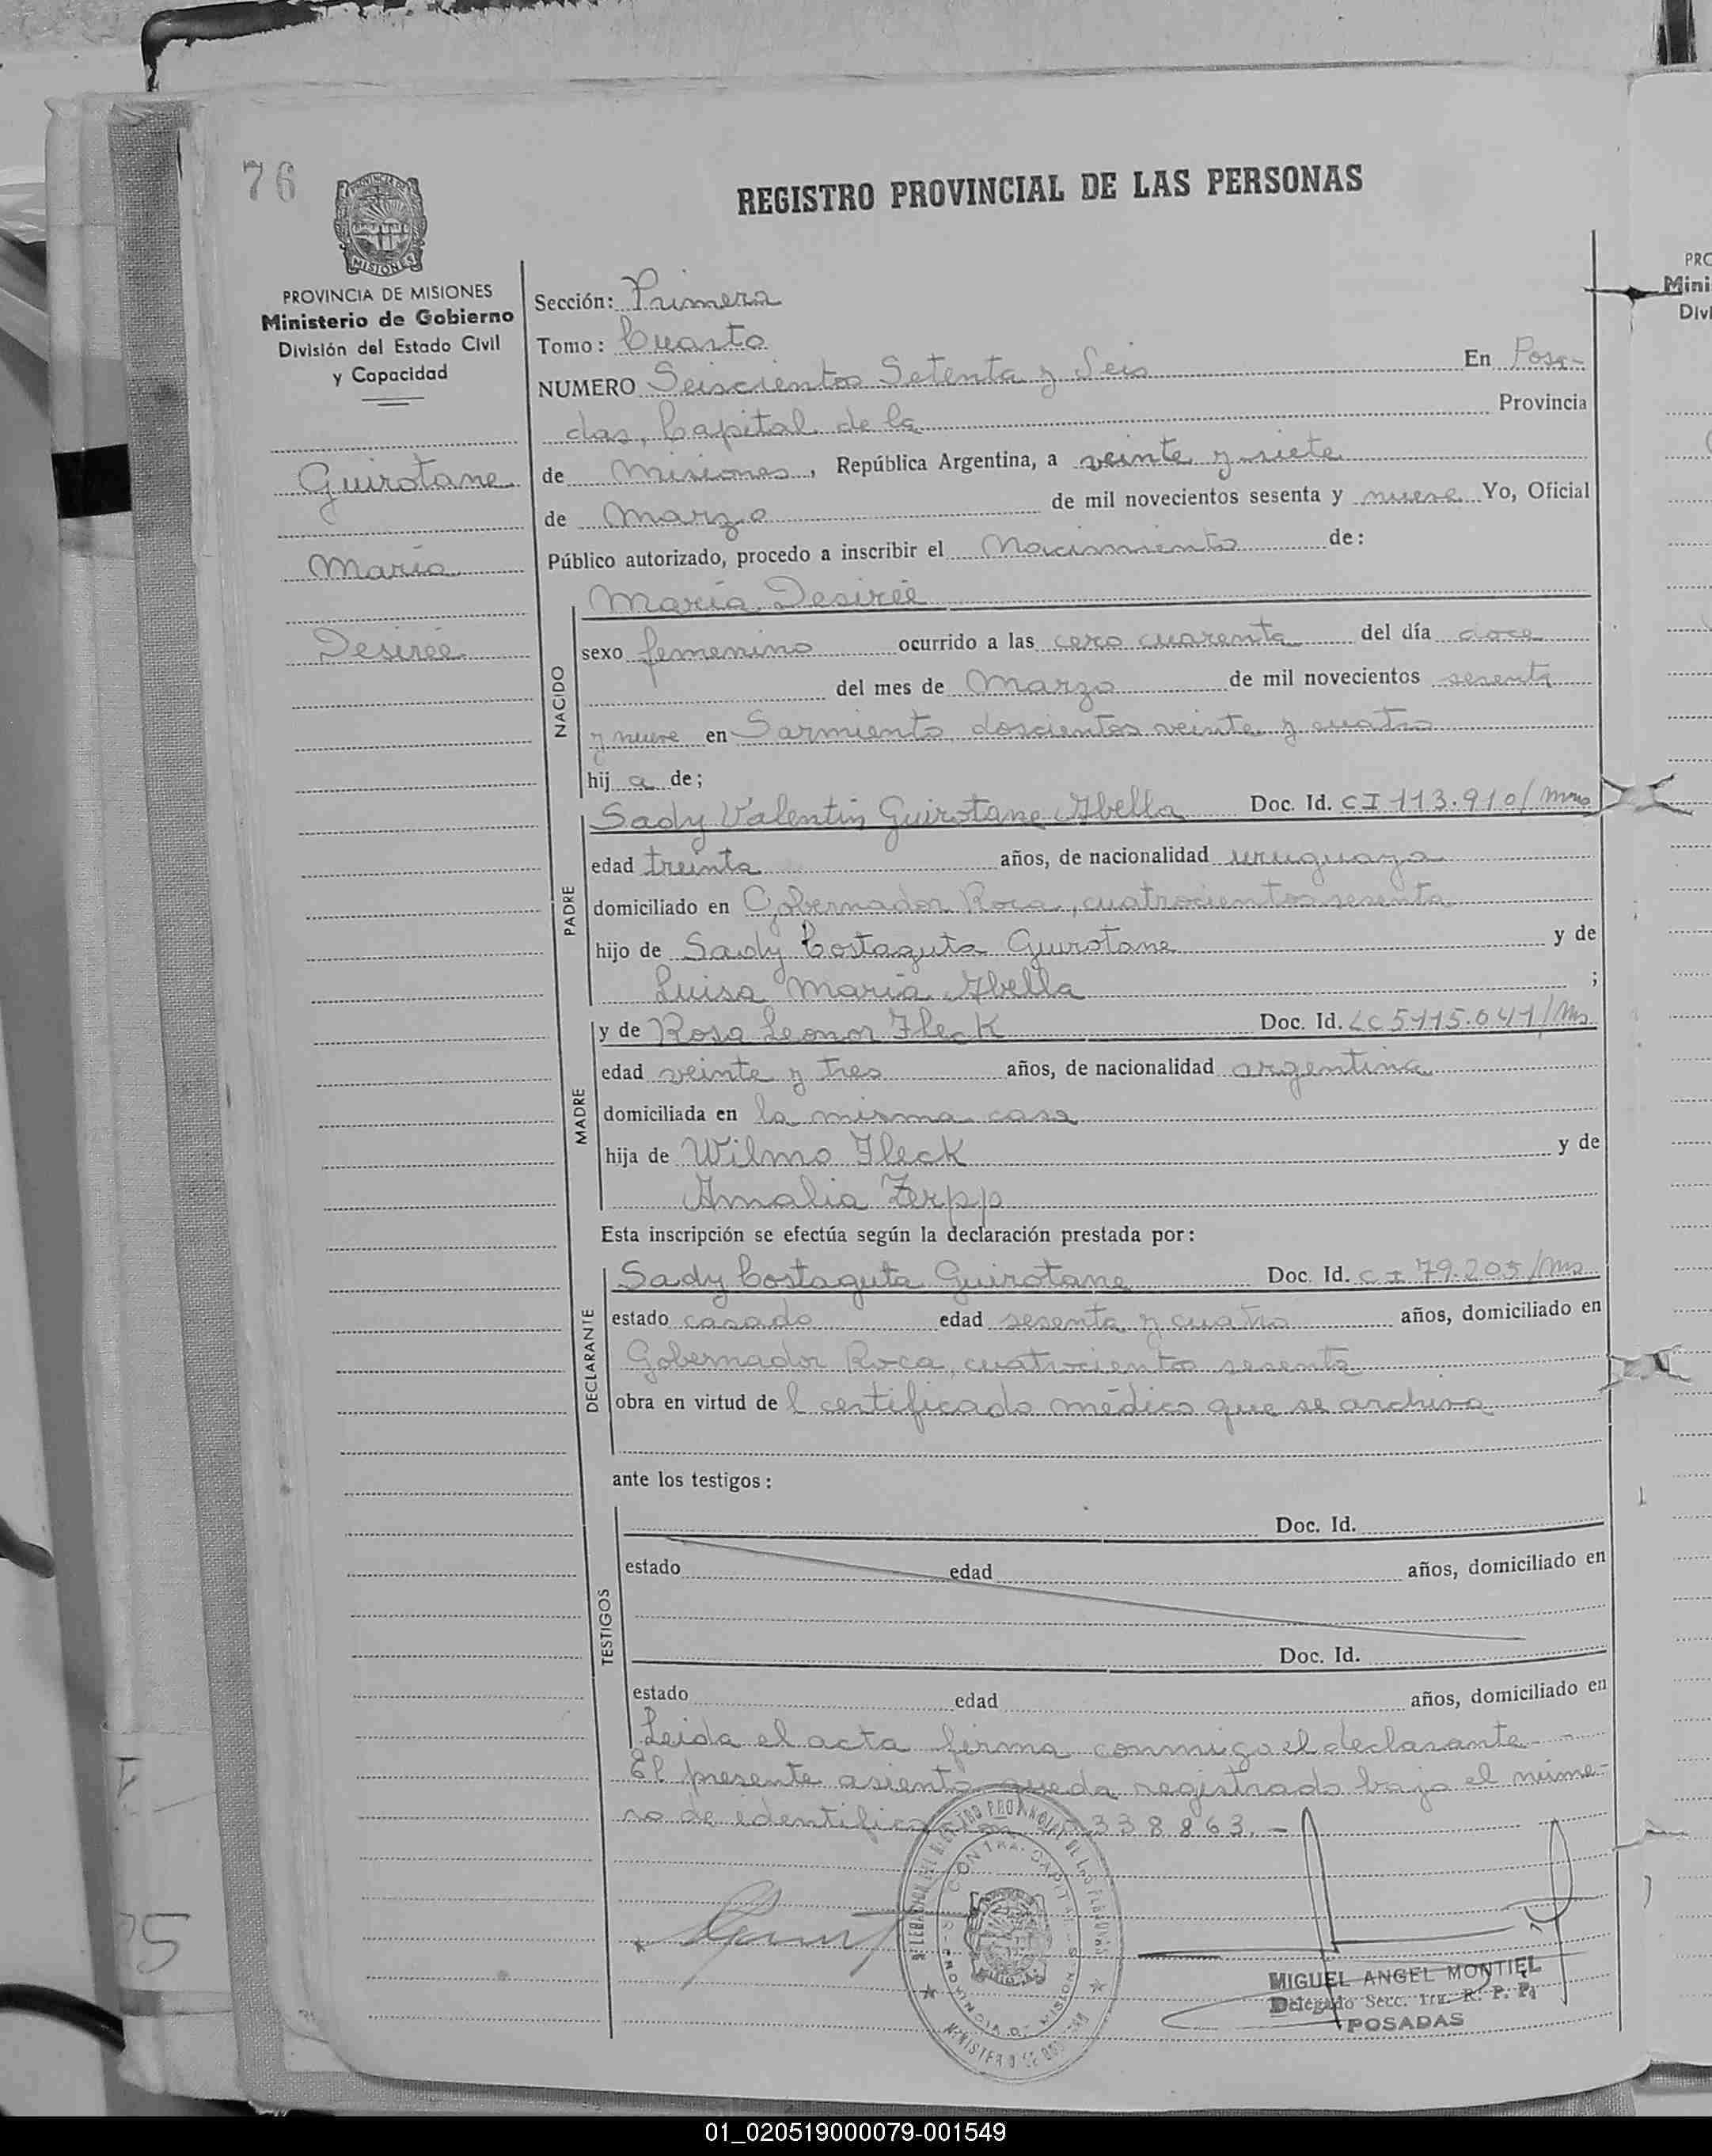 76
REGISTRO PROVINCIAL DE LAS PERSONAS
PROVINCIA DE MISIONES
Ministerio de Gobierno
División del Estado Civil
y Capacidad
Guirotane
María
Desireé
Sección: Primera
Tomo: Cuarto
NUMERO Seiscientos Setenta y Seis En Posa-
das, Capital de la Provincia
de Misiones, República Argentina, a veinte y siete
de Marzo de mil novecientos sesenta y nueve Yo, Oficial
Público autorizado, procedo a inscribir el Nacimiento de:
NACIDO
María Desireé
sexo femenino ocurrido a las cero cuarenta del día doce
del mes de Marzo de mil novecientos sesenta
y nueve en Sarmiento doscientos veinte y cuatro
hij a de;
PADRE
Sady Valentín Guirotane Abella Doc. Id. CI 113.910/Mnes
edad treinta años, de nacionalidad uruguaya
domiciliado en Gobernador Roca, cuatrocientos sesenta
hijo de Sady Costaguta Guirotane y de
Luisa María Abella ;
MADRE
y de Rosa Leonor Fleck Doc. Id. LC 5115.041/Ms
edad veinte y tres años, de nacionalidad argentina
domiciliada en la misma casa
hija de Wilmo Fleck y de
Amalia Zerpp
Esta inscripción se efectúa según la declaración prestada por:
DECLARANTE
Sady Costaguta Guirotane Doc. Id. C I 79.205/Mns
estado casado edad sesenta y cuatro años, domiciliado en
Gobernador Roca, cuatrocientos sesenta
obra en virtud de l certificado médico que se archiva
ante los testigos:
TESTIGOS
Doc. Id.
estado edad años, domiciliado en
Doc. Id.
estado edad años, domiciliado en
Leida el acta firma conmigo el declarante
El presente asiento queda registrado bajo el núme-
ro de identificación 338863.-
MIGUEL ANGEL MONTIEL
Delegado Secc. 1ra. R. P. P.
POSADAS
PRO
Mini
Divi
01_020519000079-001549